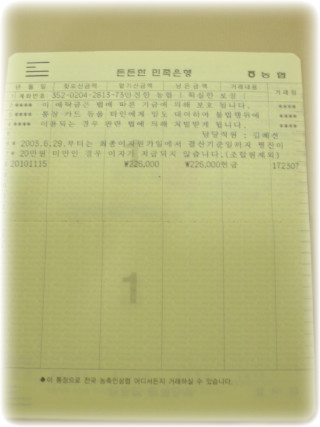 든든한 민족은행 농협
년 월 일 찾으신금액 맡기신금액 남은금액 거래내용 거래점
계좌번호: 352-0204-2813-73 안전한 농협 ( 확실한 보장 )
**** 이 예탁금은 법에 따른 기금에 의해 보호 됩니다. ****
**** 통장 카드 등을 타인에게 양도 대여하여 불법행위에 ****
**** 이용되는 경우 관련 법에 의해 처벌받게 됩니다. ****
담당직원 :
* 2003.6.29.부터는 최종이자원가일에서 결산기준일까지 평잔이
* 20만원 미만인 경우 이자가 지급되지 않습니다.(조합원제외)
20101115 ¥226,000 ¥226,000 현금 172307
1
◆이 통장으로 전국 농축인삼협 어디서든지 거래하실 수 있습니다.